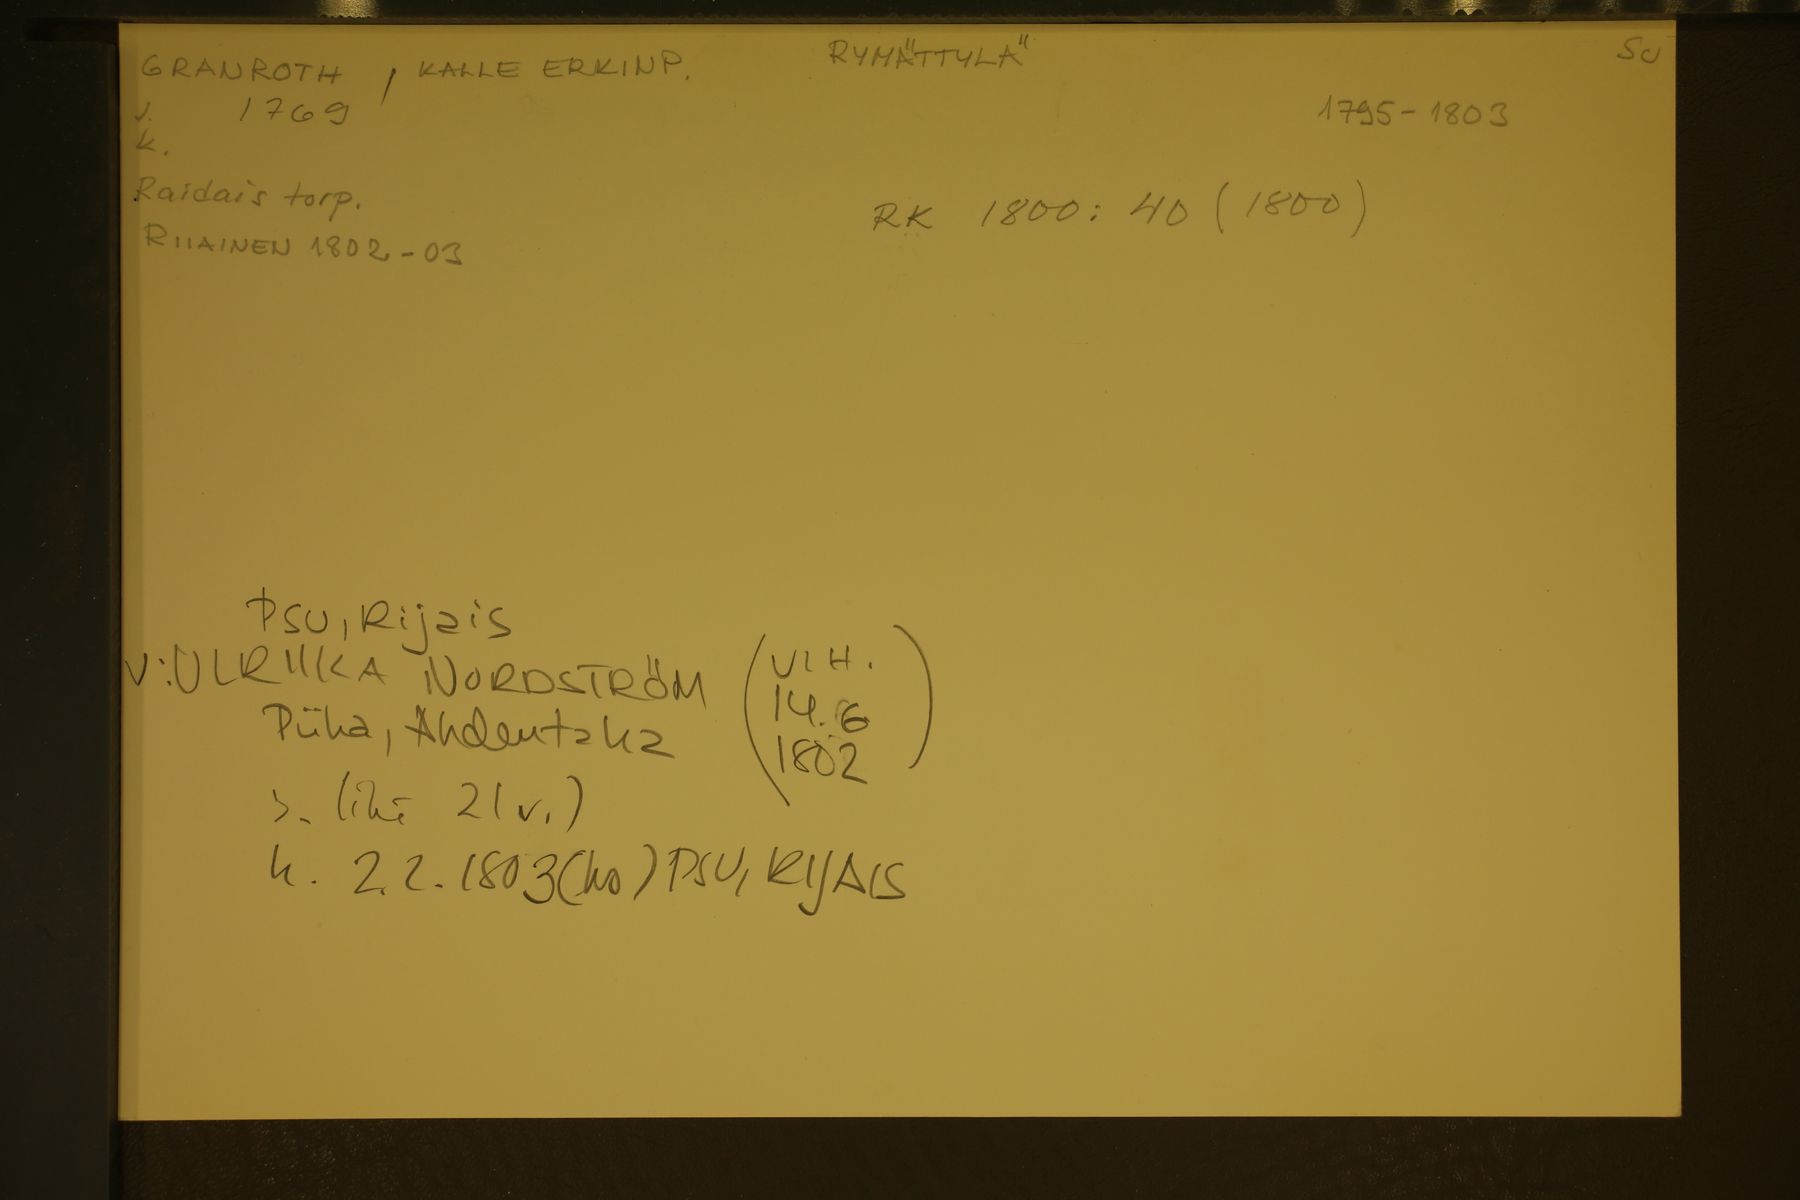 GRANROTH, KALLE ERKINP. RYMÄTTYLÄ SU
s. 1769 1795-1803
k.
Raidais torp.
RK 1800: 40 (1800)
RIIAINEN 1802-03
PSU, Rijais
V: ULRIIKA NORDSTRÖM (VIH. 14.6 1802)
Piiha,
s. (ikä 21 v.)
k. 2.2. 1803 (ho) PSU, RIJAIS